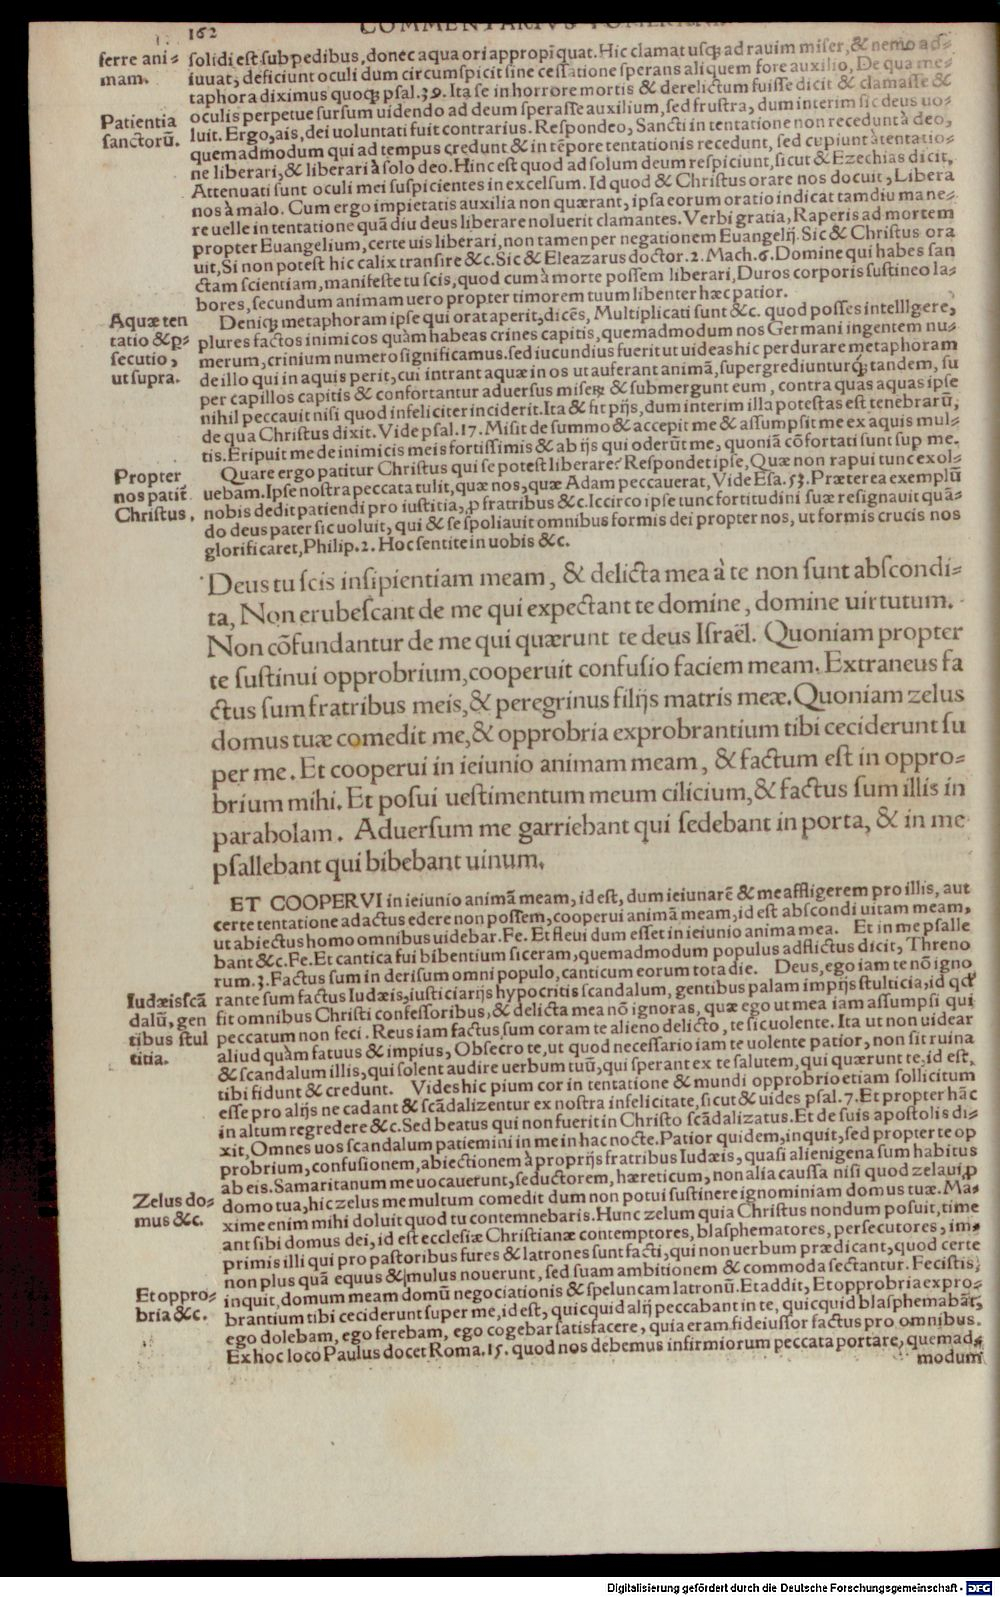 162
COMMENTARIVS POMERANI
ferre ani-
mam.
solidi est sub pedibus, donec aqua ori appropīquat. Hic clamat usq; ad rauim miser, & nemo ad-
iuuat, deficiunt oculi dum circumspicit sine cessatione sperans aliquem fore auxilio, De qua me-
taphora diximus quoq; psal.39. Ita se in horrore mortis & derelictum fuisse dicit & clamasse &
Patientia
sanctorū.
oculis perpetue sursum uidendo ad deum sperasse auxilium, sed frustra, dum interim sic deus uo-
luit. Ergo, ais, dei uoluntati fuit contrarius. Respondeo, Sancti in tentatione non recedunt à deo,
quemadmodum qui ad tempus credunt & in tēpore tentationis recedunt, sed cupiunt à tentatio-
ne liberari, & liberari à solo deo. Hinc est quod ad solum deum respiciunt, sicut & Ezechias dicit,
Attenuati sunt oculi mei suspicientes in excelsum. Id quod & Christus orare nos docuit, Libera
nos à malo. Cum ergo impietatis auxilia non quærant, ipsa eorum oratio indicat tamdiu mane-
re uelle in tentatione quā diu deus liberare noluerit clamantes. Verbi gratia, Raperis ad mortem
propter Euangelium, certe uis liberari, non tamen per negationem Euangelij. Sic & Christus ora
uit, Si non potest hic calix transire &c. Sic & Eleazarus doctor. 2. Mach.6. Domine qui habes san
ctam scientiam, manifeste tu scis, quod cum à morte possem liberari, Duros corporis sustineo la-
bores, secundum animam uero propter timorem tuum libenter hæc patior.
Aquæ ten
tatio & p-
secutio,
ut supra.
Deniq; metaphoram ipse qui orat aperit, dicēs, Multiplicati sunt &c. quod posses intelllgere,
plures factos inimicos quàm habeas crines capitis, quemadmodum nos Germani ingentem nu-
merum, crinium numero significamus. sed iucundius fuerit ut uideas hic perdurare metaphoram
de illo qui in aquis perit, cui intrant aquæ in os ut auferant animā, supergrediunturq; tandem, su
per capillos capitis & confortantur aduersus miserꝝ & submergunt eum, contra quas aquas ipse
nihil peccauit nisi quod infeliciter inciderit. Ita & fit pijs, dum interim illa potestas est tenebrarū,
de qua Christus dixit. Vide psal.17. Misit de summo & accepit me & assumpsit me ex aquis mul-
tis. Eripuit me de inimicis meis fortissimis & ab ijs qui oderūt me, quoniā cōfortati sunt sup me.
Propter
nos patiť
Christus.
Quare ergo patitur Christus qui se potest liberare? Respondet ipse, Quæ non rapui tunc exol-
uebam. Ipse nostra peccata tulit, quæ nos, quæ Adam peccauerat, Vide Esa.53. Præterea exemplū
nobis dedit patiendi pro iustitia, ꝓ fratribus &c. Iccirco ipse tunc fortitudini suæ resignauit quā-
do deus pater sic uoluit, qui & se spoliauit omnibus formis dei propter nos, ut formis crucis nos
glorificaret, Philip.2. Hoc sentite in uobis &c.
Deus tu scis insipientiam meam, & delicta mea à te non sunt abscondi-
ta, Non erubescant de me qui expectant te domine, domine uirtutum.
Non cōfundantur de me qui quærunt te deus Israël. Quoniam propter
te sustinui opprobrium, cooperuit confusio faciem meam. Extraneus fa
ctus sum fratribus meis, & peregrinus filijs matris meæ. Quoniam zelus
domus tuæ comedit me, & opprobria exprobrantium tibi ceciderunt su
per me. Et cooperui in ieiunio animam meam, & factum est in oppro-
brium mihi. Et posui uestimentum meum cilicium, & factus sum illis in
parabolam. Aduersum me garriebant qui sedebant in porta, & in me
psallebant qui bibebant uinum.
ET COOPERVI in ieiunio animā meam, id est, dum ieiunarē & me affligerem pro illis, aut
certe tentatione adactus edere non possem, cooperui animā meam, id est abscondi uitam meam,
ut abiectus homo omnibus uidebar. Fe. Et fleui dum esset in ieiunio anima mea. Et in me psalle
bant &c. Fe. Et cantica fui bibentium siceram, quemadmodum populus adflictus dicit, Threno
rum.3. Factus sum in derisum omni populo, canticum eorum tota die. Deus, ego iam te nō igno
Iudæis scā
dalū, gen
tibus stul
titia.
rante sum factus Iudæis, iusticiarijs hypocritis scandalum, gentibus palam impijs stulticia, id qď
fit omnibus Christi confessoribus, & delicta mea nō ignoras, quæ ego ut mea iam assumpsi qui
peccatum non feci. Reus iam factus sum coram te alieno delicto, te sic uolente. Ita ut non uidear
aliud quàm fatuus & impius, Obsecro te, ut quod necessario iam te uolente patior, non sit ruina
& scandalum illis, qui solent audire uerbum tuū, qui sperant ex te salutem, qui quærunt te, id est,
tibi fidunt & credunt. Vides hic pium cor in tentatione & mundi opprobrio etiam sollicitum
esse pro alijs ne cadant & scādalizentur ex nostra infelicitate, sicut & uides psal.7. Et propter hāc
in altum regredere &c. Sed beatus qui non fuerit in Christo scādalizatus. Et de suis apostolis di-
xit, Omnes uos scandalum patiemini in me in hac nocte. Patior quidem, inquit, sed propter te op
probrium, confusionem, abiectionem à proprijs fratribus Iudæis, quasi alienigena sum habitus
ab eis. Samaritanum me uocauerunt, seductorem, hæreticum, non alia caussa nisi quod zelaui ꝓ
Zelus do-
mus &c.
domo tua, hic zelus me multum comedit dum non potui sustinere ignominiam domus tuæ. Ma-
xime enim mihi doluit quod tu contemnebaris. Hunc zelum quia Christus nondum posuit, time
ant sibi domus dei, id est ecclesiæ Christianæ contemptores, blasphematores, persecutores, im-
primis illi qui pro pastoribus fures & latrones sunt facti, qui non uerbum prædicant, quod certe
non plus quā equus & mulus nouerunt, sed suam ambitionem & commoda sectantur. Fecistis,
Et oppro-
bria &c.
inquit, domum meam domū negociationis & speluncam latronū. Et addit, Et opprobria expro-
brantium tibi ceciderunt super me, id est, quicquid alij peccabant in te, quicquid blasphemabāt,
ego dolebam, ego ferebam, ego cogebar satisfacere, quia eram fideiussor factus pro omnibus.
Ex hoc loco Paulus docet Roma.15. quod nos debemus infirmiorum peccata portare, quemad-
modum
Digitalisierung gefördert durch die Deutsche Forschungsgemeinschaft - DFG